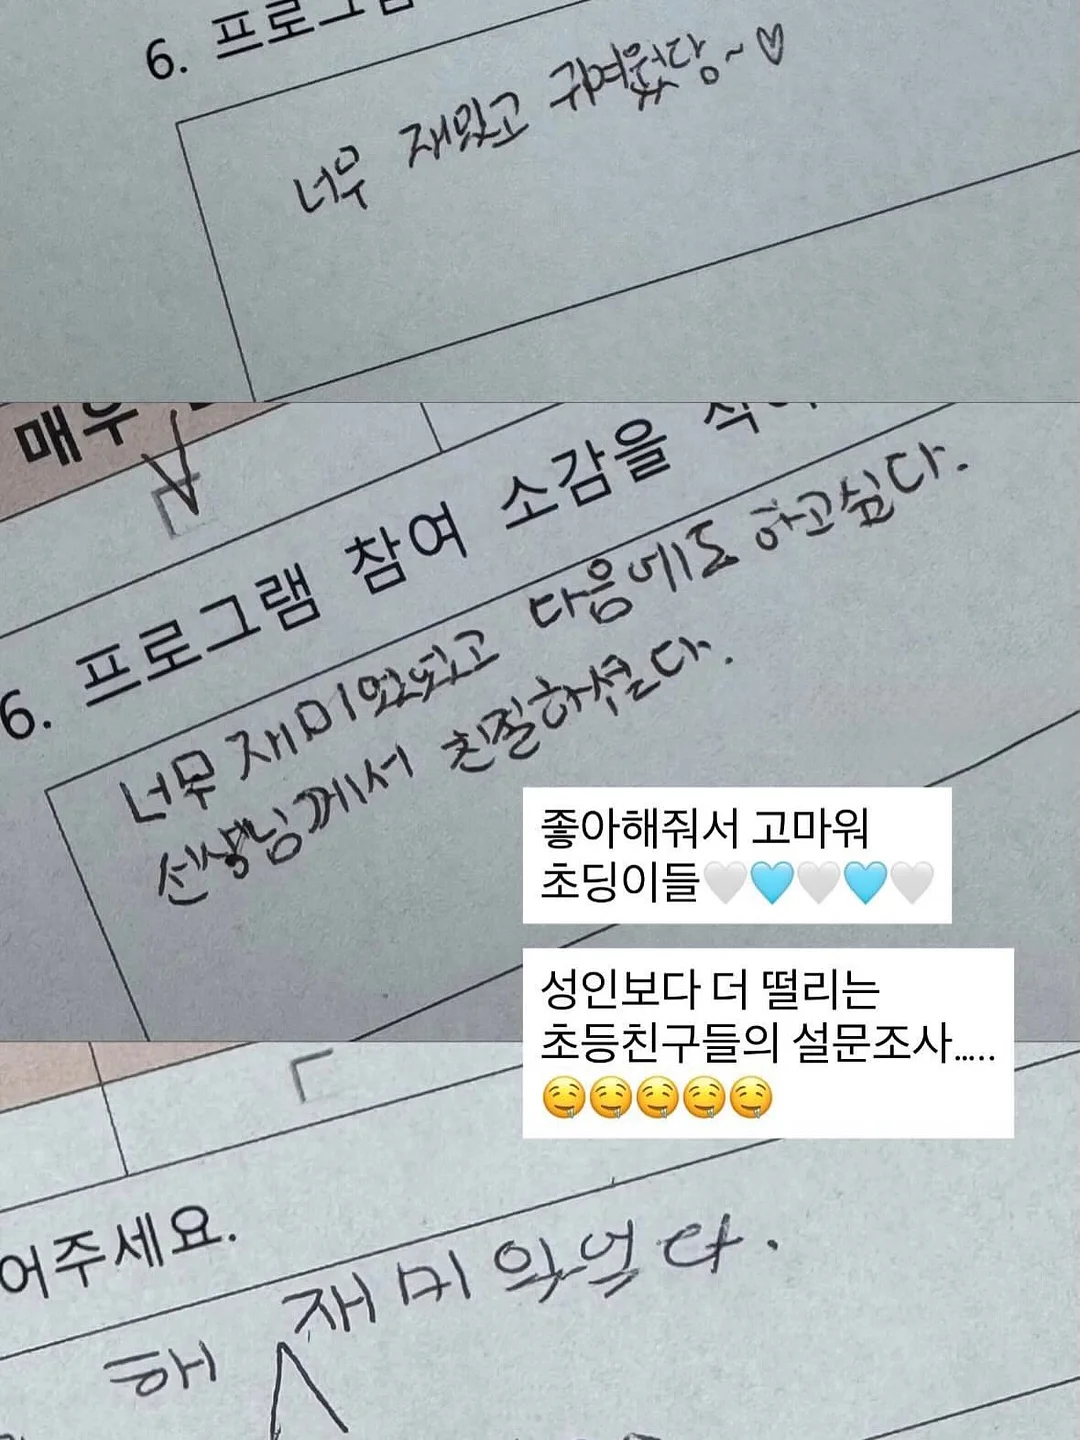 6. 프로그램
너무 재밌고 귀여웠당~♡
매우
6. 프로그램 참여 소감을 적어
너무 재미있었고 다음에도 하고싶다.
선생님께서 친절하셨다.
좋아해줘서 고마워
초딩이들🤍🩵🤍🩵🤍
성인보다 더 떨리는
초등친구들의 설문조사.....
🤤🤤🤤🤤🤤
어주세요.
해 재미있었다.